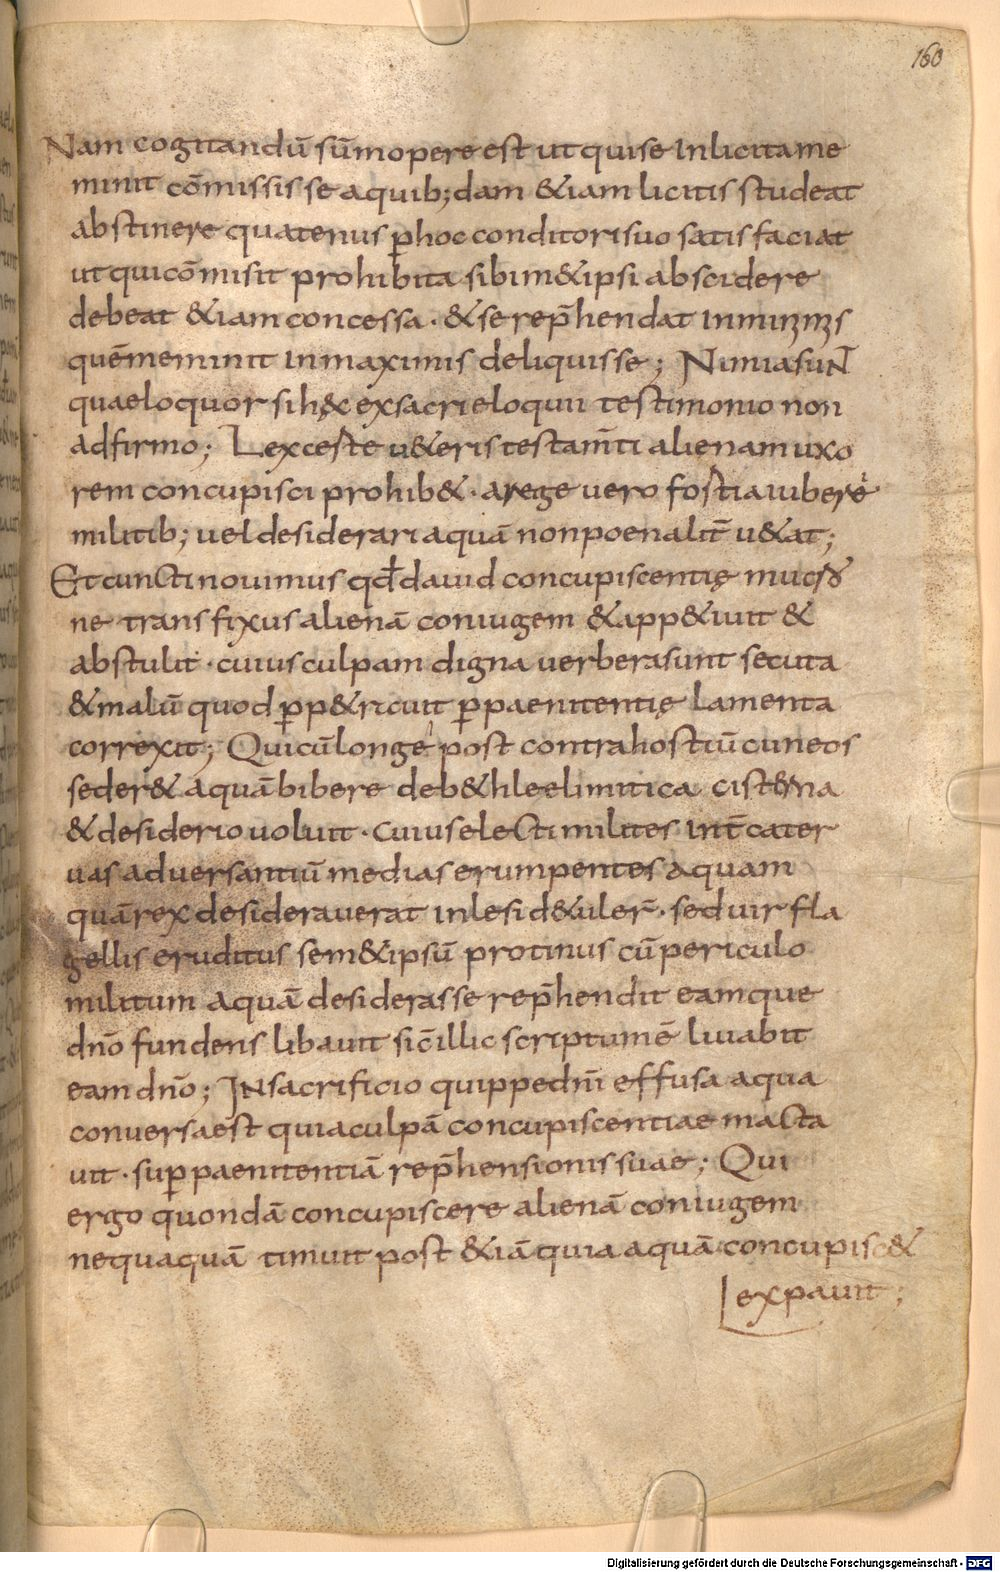 160
Nam cogitandū sūmopere est ut qui se inlicita me
minit cōmissis se a quib; dam &iam licitis studeat
abstinere quatenus p̄ hoc conditori suo satis faciat
ut qui cōmisit prohibita sibim& ipsi abscidere
debeat &iam concessa · & se rep̄hendat in minimis
quē meminit in maximis deliquisse ; Nimia sunt
quae loquor si h&c ex sacri eloquii testimonio non
adfirmo ; Lex certe u&eris testam̄ti alienam uxo
rem concupisci prohib& · a rege uero fortia iubere
militib; uel desiderari aquā non poenalit̄ u&at ;
Et cuncti nouimus qđ dauid concupiscentię mucro
ne transfixus alienā coniugem & app&iuit &
abstulit · cuius culpam digna uerbera sunt secuta
& malū quod p̄p&rauit p̄ paenitentię lamenta
correxit ; Qui cū longe post contra hostiū cuneos
seder& aquā bibere de b&hleelimitica cisterna
& desiderio uoluit · cuius electi milites int̄ cater
uas aduersantiū medias erumpentes aquam
quā rex desiderauerat inlesi d&uler̄ · sed uir fla
gellis eruditus sem&ipsū protinus cū periculo
militum aquā desiderasse rep̄hendit eamque
dn̄o fundens libauit sic̄ illic scriptum ē liuabit
eam dn̄o ; In sacrificio quippe dn̄i effusa aqua
conuersa est quia culpā concupiscentiae macta
uit · sup̄ paenitentiā rep̄hensionis suae ; Qui
ergo quondā concupiscere alienā coniugem
nequaquā timuit post &iā quia aquā concupisc&
expauit ;
Digitalisierung gefördert durch die Deutsche Forschungsgemeinschaft - DFG